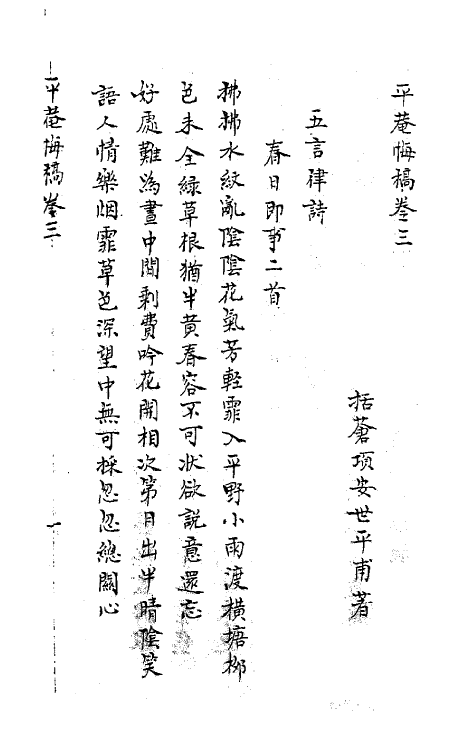 平菴悔稿卷三
括蒼項安世平甫著
五言律詩
春日即事二首
拂拂水紋亂陰陰花氣芳輕霏入平野小雨渡橫塘柳
色未全綠草根猶半黃春容不可狀欲説意還忘
好處難為畫中間剩費吟花開相次第月出半晴陰笑
語人情樂烟霏草色深望中無可採忽忽總關心
平菴悔稿卷三
一